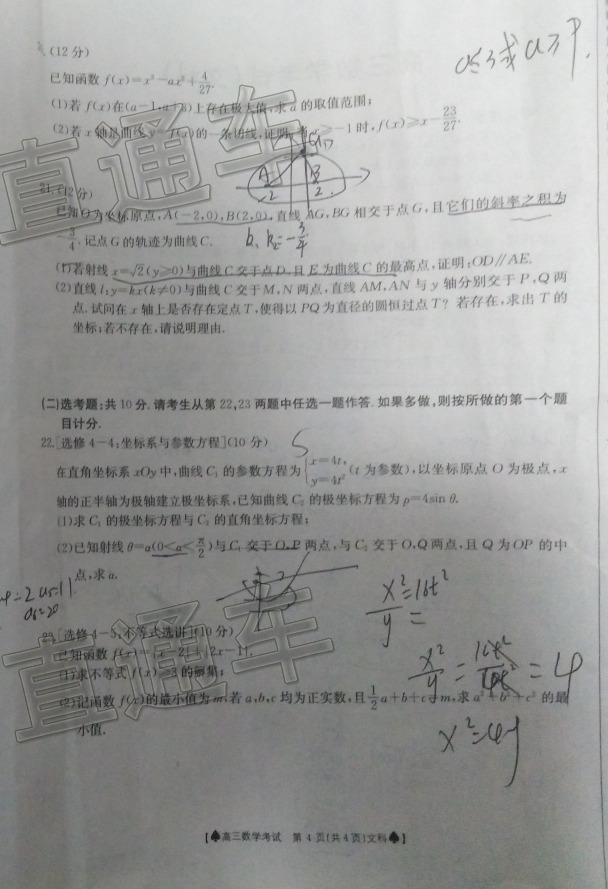 a≤ 或a≥
(12分)
已知函数f(x)=x³-ax²+4/27.
(1)若f(x)在(a-1,a+3)上存在极大值,求a的取值范围;
(2)若x轴是曲线y=f(x)的一条切线,证明:当x≥-1时,f(x)≥x-23/27.
A B
2 2
21.(12分)
已知O为坐标原点,A(-2,0),B(2,0),直线AG,BG相交于点G,且它们的斜率之积为
-3/4.记点G的轨迹为曲线C.
k₁k₂=-3/4
(1)若射线x=√2(y≥0)与曲线C交于点D,且E为曲线C的最高点,证明:OD∥AE.
(2)直线l:y=kx(k≠0)与曲线C交于M,N两点,直线AM,AN与y轴分别交于P,Q两
点.试问在x轴上是否存在定点T,使得以PQ为直径的圆恒过点T?若存在,求出T的
坐标;若不存在,请说明理由.
(二)选考题:共10分.请考生从第22,23两题中任选一题作答.如果多做,则按所做的第一个题
目计分.
22.[选修4-4:坐标系与参数方程](10分)
在直角坐标系xOy中,曲线C₁的参数方程为{x=4t, y=4t²(t为参数),以坐标原点O为极点,x
轴的正半轴为极轴建立极坐标系,已知曲线C₂的极坐标方程为ρ=4sin θ.
(1)求C₁的极坐标方程与C₂的直角坐标方程;
(2)已知射线θ=α(0<α<π/2)与C₁交于O,P两点,与C₂交于O,Q两点,且Q为OP的中
点,求α.
x²=16t²
y=
x²/y=16t²/4t²=4
x²=4y
23.[选修4-5:不等式选讲](10分)
已知函数f(x)=|x-2|+|2x-1|.
(1)求不等式f(x)>3的解集;
(2)记函数f(x)的最小值为m,若a,b,c均为正实数,且1/2a+b+c=m,求a²+b²+c²的最
小值.
直通车
直通车
[♠高三数学考试 第4页(共4页)文科♠]